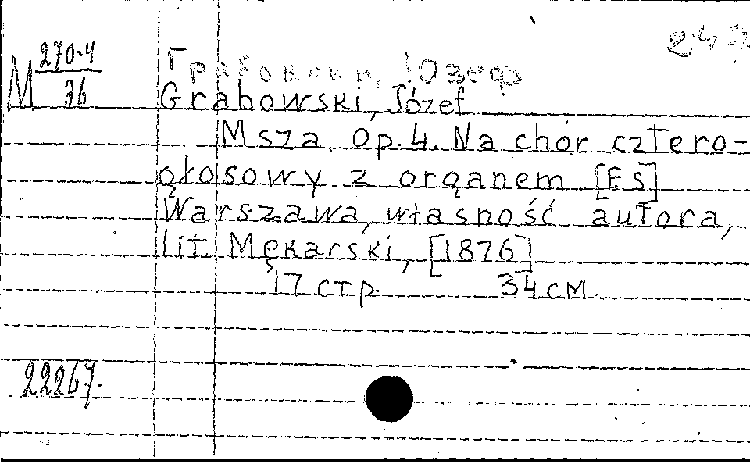 М 270-4/36
Грабовски, Юзеф
Grabowski, Józef
Msza, op. 4. Na chór cztero-
głosowy z organem [Es]
Warszawa, własność autora,
lit. Mękarski, [1876]
17 стр. 34 см.
22267.